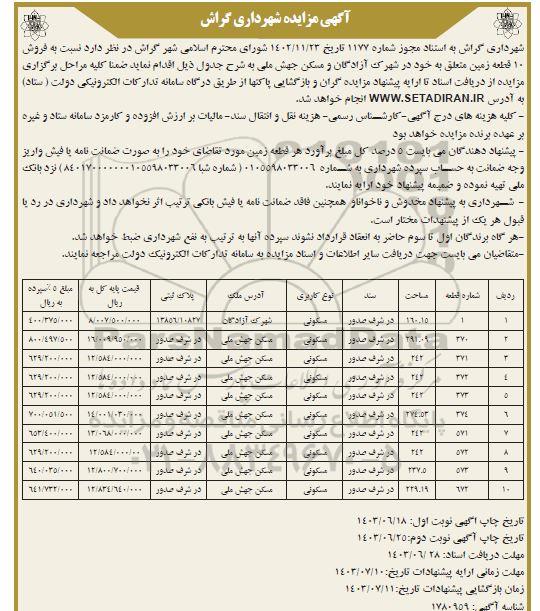 آگهی مزایده شهرداری گراش
شهرداری گراش به استناد مجوز شماره ۱۱۷۷ تاریخ ۱۴۰۲/۱۱/۲۳ شورای محترم اسلامی شهر گراش در نظر دارد نسبت به فروش
۱۰ قطعه زمین متعلق به خود در شهرک آزادگان و مسکن جهش ملی به شرح جدول ذیل اقدام نماید ضمنا کلیه مراحل برگزاری
مزایده از دریافت اسناد تا ارایه پیشنهاد مزایده گران و بازگشایی پاکتها از طریق درگاه سامانه تدارکات الکترونیکی دولت ( ستاد)
به آدرس WWW.SETADIRAN.IR انجام خواهد شد.
- کلیه هزینه های درج آگهی-کارشناس رسمی- هزینه نقل و انتقال سند- مالیات بر ارزش افزوده و کارمزد سامانه ستاد و غیره
بر عهده برنده مزایده خواهد بود
- پیشنهاد دهندگان می بایست ۵ درصد کل مبلغ برآورد هر قطعه زمین مورد تقاضای خود را به صورت ضمانت نامه یا فیش واریز
وجه ضمانت به حساب سپرده شهرداری به شماره ۰۱۰۵۵۹۸۰۳۳۰۰۶ ( شماره شبا ۸۴۰۱۷۰۰۰۰۰۰۰۱۰۵۵۹۸۰۳۳۰۰۶ ) نزد بانک
ملی تهیه نموده و ضمیمه پیشنهاد خود ارایه نمایند.
- شهرداری به پیشنهاد مخدوش و ناخوانا و همچنین فاقد ضمانت نامه یا فیش بانکی ترتیب اثر نخواهد داد و شهرداری در رد یا
قبول هر یک از پیشنهدات مختار است.
-هر گاه برندگان اول تا سوم حاضر به انعقاد قرارداد نشوند سپرده آنها به ترتیب به نفع شهرداری ضبط خواهد شد.
-متقاضیان می بایست جهت دریافت سایر اطلاعات و اسناد مزایده به سامانه تدارکات الکترونیک دولت مراجعه نمایند.
ردیف شماره قطعه مساحت سند نوع کاربری آدرس ملک پلاک ثبتی قیمت پایه کل به ریال مبلغ ۵٪ سپرده به ریال
۱ ۱ ۱۶۰.۱۵ در شرف صدور مسکونی شهرک آزادگان ۱۳۸۵۶/۱۰۸۲۷ ۸/۰۰۷/۵۰۰/۰۰۰ ۴۰۰/۳۷۵/۰۰۰
۲ ۳۷۰ ۲۹۱.۰۹ در شرف صدور مسکونی مسکن جهش ملی در شرف صدور ۱۶/۰۰۹/۹۵۰/۰۰۰ ۸۰۰/۴۹۷/۵۰۰
۳ ۳۷۱ ۲۴۲ در شرف صدور مسکونی مسکن جهش ملی در شرف صدور ۱۲/۵۸۴/۰۰۰/۰۰۰ ۶۲۹/۲۰۰/۰۰۰
۴ ۳۷۲ ۲۴۲ در شرف صدور مسکونی مسکن جهش ملی در شرف صدور ۱۲/۵۸۴/۰۰۰/۰۰۰ ۶۲۹/۲۰۰/۰۰۰
۵ ۳۷۳ ۲۴۲ در شرف صدور مسکونی مسکن جهش ملی در شرف صدور ۱۲/۵۸۴/۰۰۰/۰۰۰ ۶۲۹/۲۰۰/۰۰۰
۶ ۳۷۴ ۲۷۴.۵۳ در شرف صدور مسکونی مسکن جهش ملی در شرف صدور ۱۴/۰۰۱/۰۳۰/۰۰۰ ۷۰۰/۰۵۱/۵۰۰
۷ ۵۷۱ ۲۴۲ در شرف صدور مسکونی مسکن جهش ملی در شرف صدور ۱۳/۰۶۸/۰۰۰/۰۰۰ ۶۵۳/۴۰۰/۰۰۰
۸ ۵۷۲ ۲۴۲ در شرف صدور مسکونی مسکن جهش ملی در شرف صدور ۱۲/۵۸۴/۰۰۰/۰۰ ۶۲۹/۲۰۰/۰۰۰
۹ ۵۷۳ ۲۳۷.۵ در شرف صدور مسکونی مسکن جهش ملی در شرف صدور ۱۲/۸۰۰/۷۰۰/۰۰۰ ۶۴۰/۰۳۵/۰۰۰
۱۰ ۶۷۲ ۲۲۹.۱۹ در شرف صدور مسکونی مسکن جهش ملی در شرف صدور ۱۲/۸۳۴/۶۴۰/۰۰۰ ۶۴۱/۷۳۲/۰۰۰
تاریخ چاپ آگهی نوبت اول: ۱۴۰۳/۰۶/۱۸
تاریخ چاپ آگهی نوبت دوم:۱۴۰۳/۰۶/۲۵
مهلت دریافت اسناد: ۲۸ /۱۴۰۳/۰۶
مهلت زمانی ارایه پیشنهادات تاریخ:۱۴۰۳/۰۷/۱۰
زمان بازگشایی پیشنهادات تاریخ:۱۴۰۳/۰۷/۱۱
شناسه آگهی: ۱۷۸۰۹۵۹
ParsNamadData